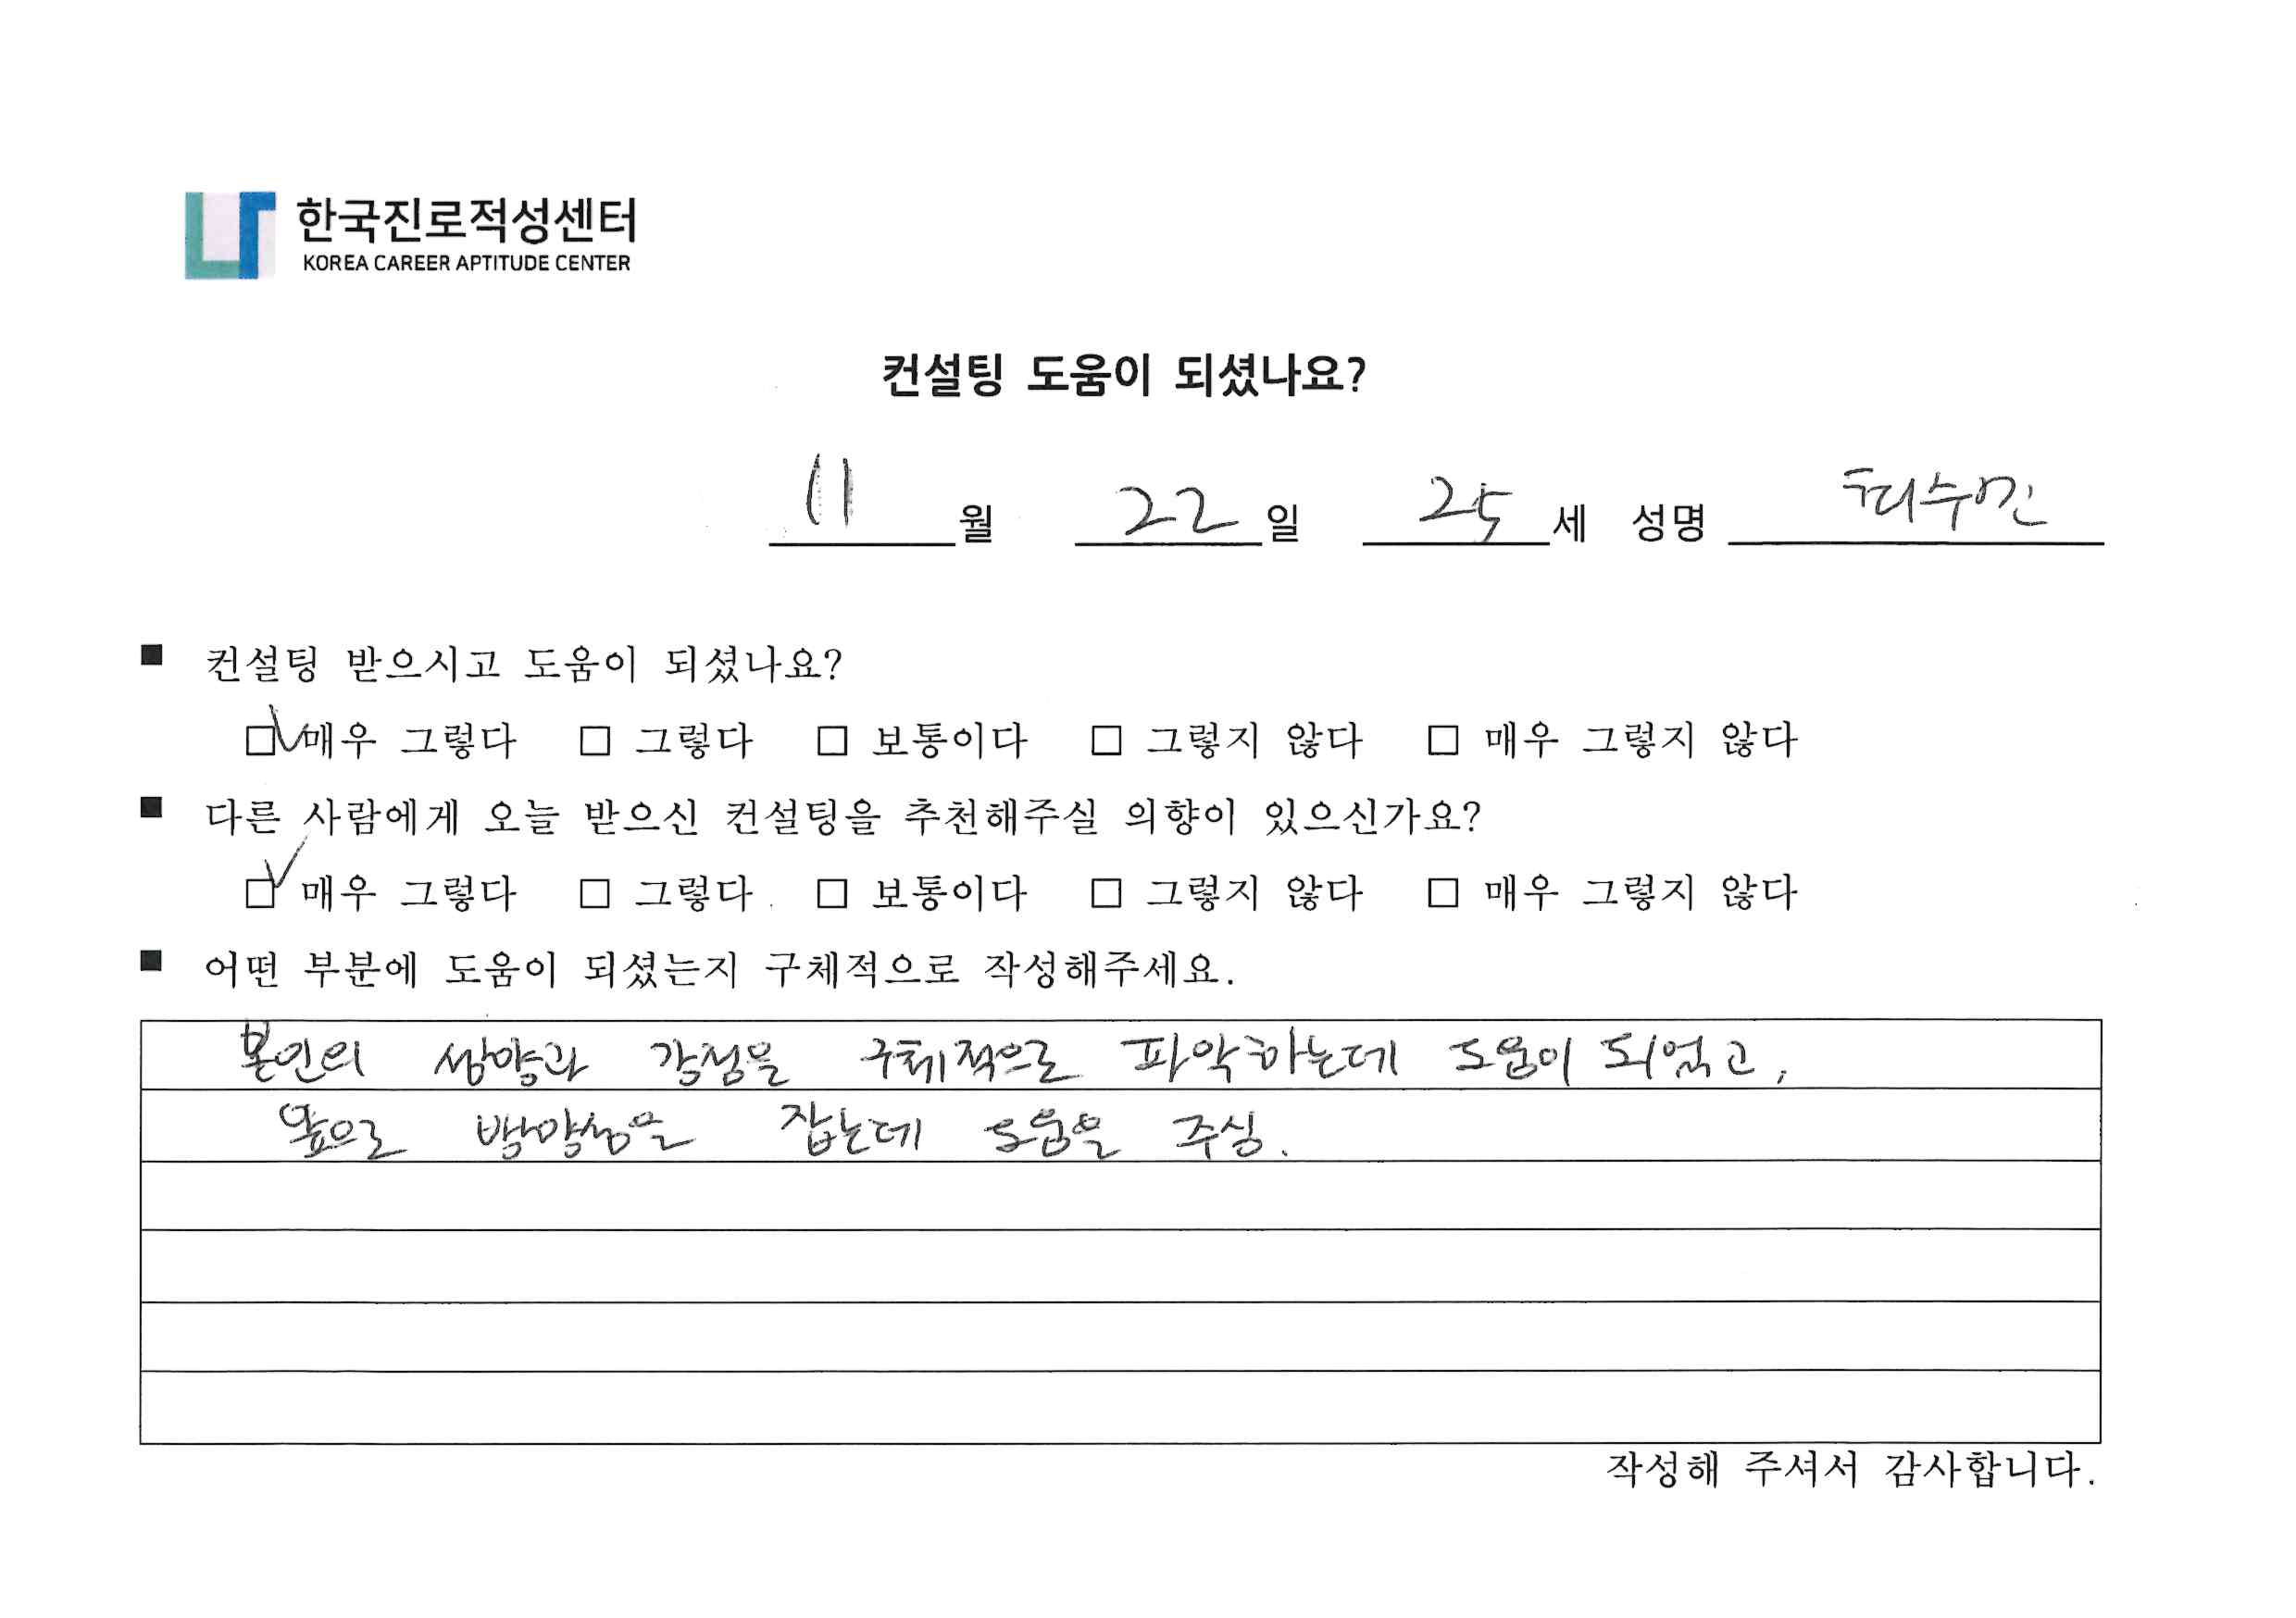 한국진로적성센터
KOREA CAREER APTITUDE CENTER
컨설팅 도움이 되셨나요?
11 월 22 일 25 세 성명
■ 컨설팅 받으시고 도움이 되셨나요?
☑ 매우 그렇다 □ 그렇다 □ 보통이다 □ 그렇지 않다 □ 매우 그렇지 않다
■ 다른 사람에게 오늘 받으신 컨설팅을 추천해주실 의향이 있으신가요?
☑ 매우 그렇다 □ 그렇다 □ 보통이다 □ 그렇지 않다 □ 매우 그렇지 않다
■ 어떤 부분에 도움이 되셨는지 구체적으로 작성해주세요.
본인의 강점을 구체적으로 파악하는데 도움이 되었고,
앞으로 방향성을 잡는데 도움을 주심.
작성해 주셔서 감사합니다.